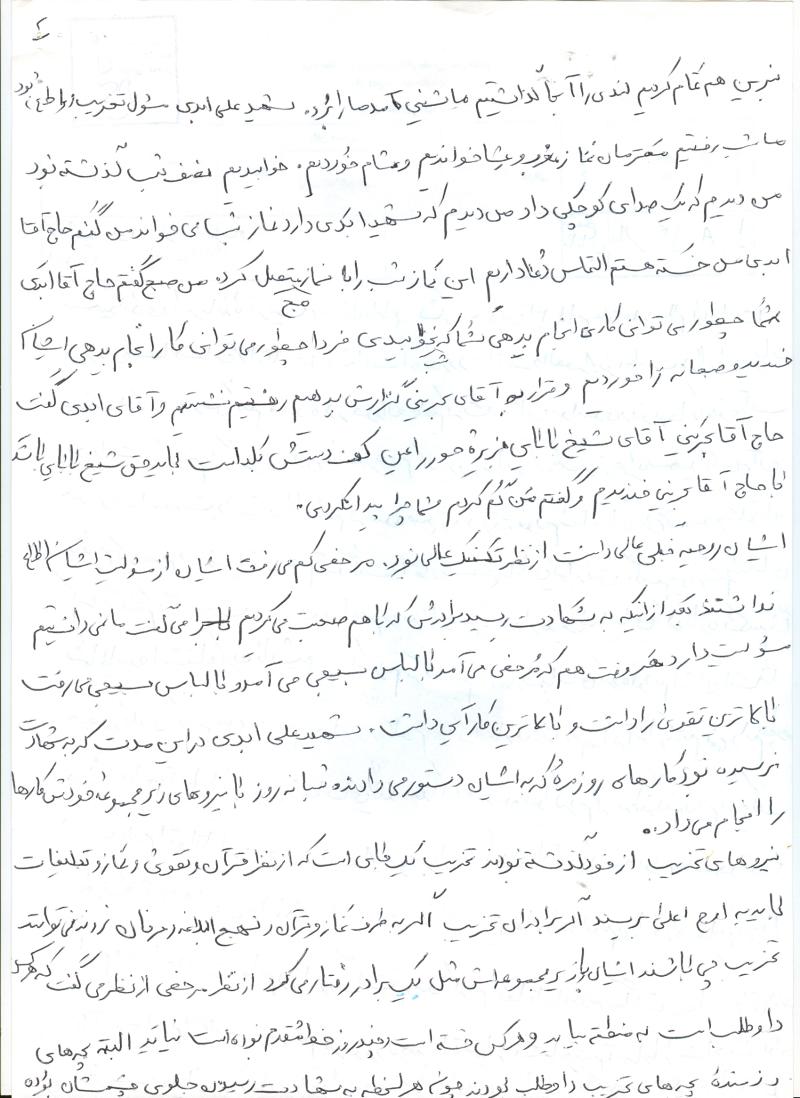 ۲
بنزین هم تمام کردیم لندی را آنجا گذاشتیم ماشینی آمد ما را برد. شهید علی ابدی مسئول تخریب بود
ما شب رفتیم مقرمان نماز مغرب و عشا خواندیم و شام خوردیم. خوابیدیم نصف شب گذشته بود
من دیدم که یک صدای کوچکی داد من دیدم که شهید ابدی دارد نماز شب می خواند من گفتم حاج آقا
ابدی من خسته هستم التماس دعا داریم این نماز شب را با نماز صبح متصل کرد. من صبح گفتم حاج آقا ابدی
شما چطور می توانی کاری انجام بدهی شما که شب نخوابیدی فردا چطور می توانی کار انجام بدهی ایشان
خندید و صبحانه را خوردیم و قرار بود آقای بحرینی گزارش بدهیم رفتیم نشستیم و آقای ابدی گفت
حاج آقا بحرینی آقای شیخ بابایی جزیره حور را عین کف دستش بلد است باید حق شیخ بابایی باشد
با حاج آقا بحرینی خندیدم و گفتم من گم کردم شما چرا پیدا نکردی.
ایشان روحیه خیلی عالی داشت از نظر تکنیک عالی بود. مرخصی کم می رفت ایشان از مسئولیت ایشان اطلاع
نداشتند بعد از اینکه به شهادت رسید برادرش که با هم صحبت می کردیم می گفت ما نمی دانستیم
مسئولیت دارد هر وقت هم که مرخصی می آمد با لباس بسیجی می آمد و با لباس بسیجی می رفت
بالاترین تقوی را داشت و بالاترین کارآیی داشت. شهید علی ابدی در این مدت که به شهادت
نرسیده بود کارهای روزمره که به ایشان دستور می دادند شبانه روز با نیروهای زیر مجموعه خودش کارها
را انجام می داد..
نیروهای تخریب از خود گذشته بودند تخریب یک جای است که از نظر قرآن و تقوی و نماز و تبلیغات
باید به اوج اعلی برسند اگر برادران تخریب اگر به طرف نماز و قرآن و نهج البلاغه و عرفان نروند نمی توانند
تخریب چی باشند ایشان با زیر مجموعه اش مثل یک برادر رفتار می کرد از نظر مرخصی از نظر می گفت که هر کس
داوطلب است به منطقه بیاید و هر کس خسته است چند روز نیاید البته بچه های
رزمنده بچه های تخریب داوطلب بودند چون هر لحظه به شهادت رسیدن جلوی چشمشان بوده